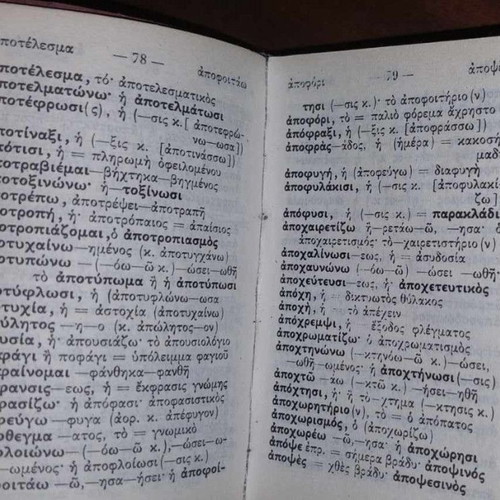 ποτέλεσμα — 78 — ἀποφοιτάω
ποτέλεσμα, τό· ἀποτελεσματικὸς
ποτελματώνω· ἡ ἀποτελμάτωσι
ποτέφρωσι(ς), ἡ (—σις κ. [ἀποτεφρώ-
νω—ωσα])
ποτίναξι, ἡ (—ξις κ. [ἀποτινάσσω])
πότισι, ἡ = πληρωμὴ ὀφειλομένου
ποτραβιέμαι—βήχτηκα—βηγμένος
ποτοξινώνω· ἡ—τοξίνωσι
ποτρέπω, ἀποτρέψει—ἀποτραπῆ
ποτροπή, ἡ· ἀποτρόπαιος = ἀπαίσιος
οτροπιάζομαι, ὁ ἀποτροπιασμὸς
οτυχαίνω—ημένος (κ. ἀποτυγχάνω)
οτυπώνω —(—όω—ῶ κ.) —ώσει—ωθῆ
τὸ ἀποτύπωμα ἢ ἡ ἀποτύπωσι
οτύφλωσι, ἡ (ἀποτυφλώνω—ωσα
οτυχία, ἡ = ἀστοχία (ἀποτυχαίνω)
ούλητος —η—ο (κ. ἀπώλητος—ον)
ουσία, ἡ· ἀπουσιάζω· τὸ ἀπουσιολόγιο
φάγι ἢ ποφάγι = ὑπόλειμμα φαγιοῦ
φαίνομαι —φάνθηκα—φανθῆ
φανσις—εως, ἡ = ἔκφρασις γνώμης
φασίζω· ἡ ἀπόφασι· ἀποφασιστικὸς
φεύγω—φυγα (ἀορ. κ. ἀπέφυγον)
φθεγμα —ατος, τὸ = γνωμικὸ
φλοιώνω —(—όω—ῶ κ.),—ώσει—ω-
—ωμένος· ἡ ἀποφλοίωσι (—σις κ.)
φοιτάω —ῶ,—ησα—ήσει· ἡ ἀποφοί-
ἀποφόρι — 79 — ἀποψε
τησι (—σις κ.)· τὸ ἀποφοιτήριο(ν)
ἀποφόρι, τὸ = παλιὸ φόρεμα ἄχρηστο
ἀπόφραξι, ἡ (—ξις κ. [ἀποφράσσω])
ἀποφρὰς—άδος, ἡ (ἡμέρα) = κακοση
μαδ
ἀποφυγή, ἡ (ἀποφεύγω) = διαφυγὴ
ἀποφυλάκισι, ἡ (—σις κ. [ἀποφυλακί-
ζω])
ἀπόφυσι, ἡ (—σις κ.) = παρακλάδι
ἀποχαιρετίζω ἢ—ρετάω—ῶ, —ησα· ὁ
ἀποχαιρετισμός· τὸ—χαιρετιστήριο(ν)
ἀποχαλίνωσι—εως, ἡ = ἀσυδοσία
ἀποχαυνώνω (—όω—ῶ) —ώσει —ωθῆ
ἀποχέτευσι—εως, ἡ· ἀποχετευτικὸς
ἀπόχη, ἡ = δικτυωτὸς θύλακος
ἀποχή, ἡ — τὸ ἀπέχειν
ἀπόχρεμψι, ἡ = ἔξοδος φλέγματος
ἀποχρωματίζω· ὁ ἀποχρωματισμὸς
ἀποχτηνώνω (—κτηνόω—ῶ κ.)—ώσει,
—ωθῆ—ωμένος· ἡ ἀποχτήνωσι (—σις)
ἀποχτῶ —άω (—κτῶ κ.) —ήσει—ηθῆ
ἀπόχτησι, ἡ· ἢ τὸ —χτημα (—κτησις κ.)
ἀποχωρητήριο(ν), τὸ = ὁ ἀπόπατος
ἀποχωρισμός, ὁ (ἀποχωρίζω)
ἀποχωρέω —ῶ,—ησα· ἡ ἀποχώρησι
ἀπόψε ἐπρ. = σήμερα βράδυ· ἀποψινὸς
ἀποψὲς = χθὲς βράδυ· ἀποψεσινὸς